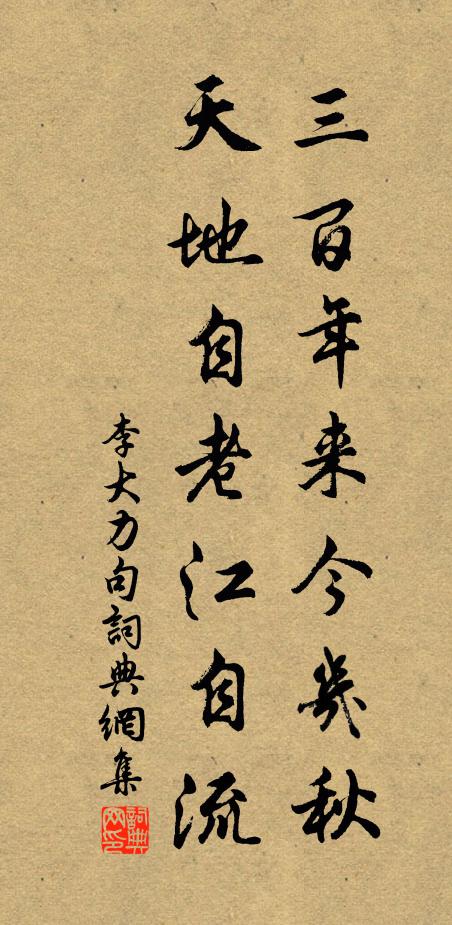 三百年来今幾秋
天地自老江自流
李大力句詞典網集
詞典网印